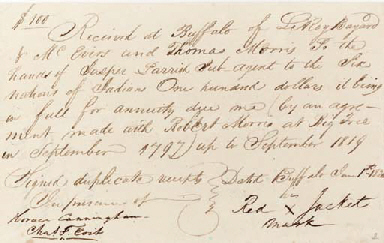 $100
Received at Buffalo of LeRoy Bayard
& McEvers and Thomas Morris by the
hands of Jasper Parrish Sub agent to the Six
nations of Indians One hundred dollars it being
in full for annuity due me (by an agre-
ment made with Robert Morris at Big Tree
in September 1797) up to September 1819
Signed duplicate receipts Dated Buffalo Jan 1st
In presence of his
Horace Cunningham Red X Jacket
Chas. F. Coit mark